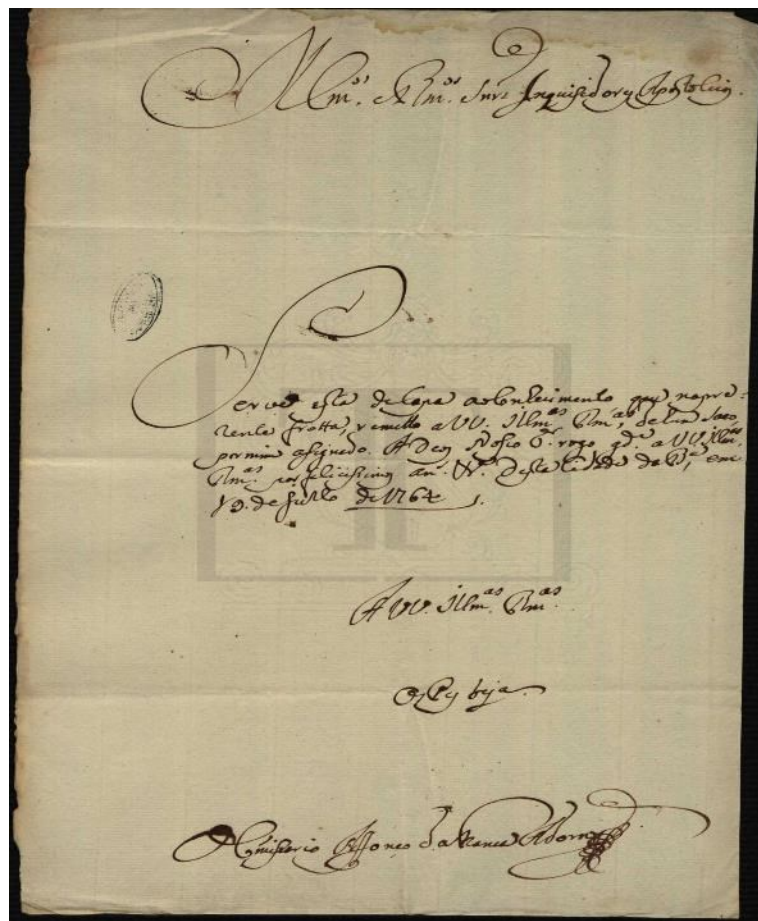 Illmos. e Rmos. Snrs Inquisidores Apostolicos.
Serve esta de Capa ao Conhecimento que na pre-
zente frotta, remetto a VV. Illmas Rmas, de hum Saco,
por mim asignado. A Deos Nosso Sr. rogo gde. a VV. Illmas.
Rmas. por felicissimos ans. Va. Desta Cidade da Ba, em
19. de Julho de 1764.
A VV. Illmas. Rmas.
Os Pes beja.
O Comissario